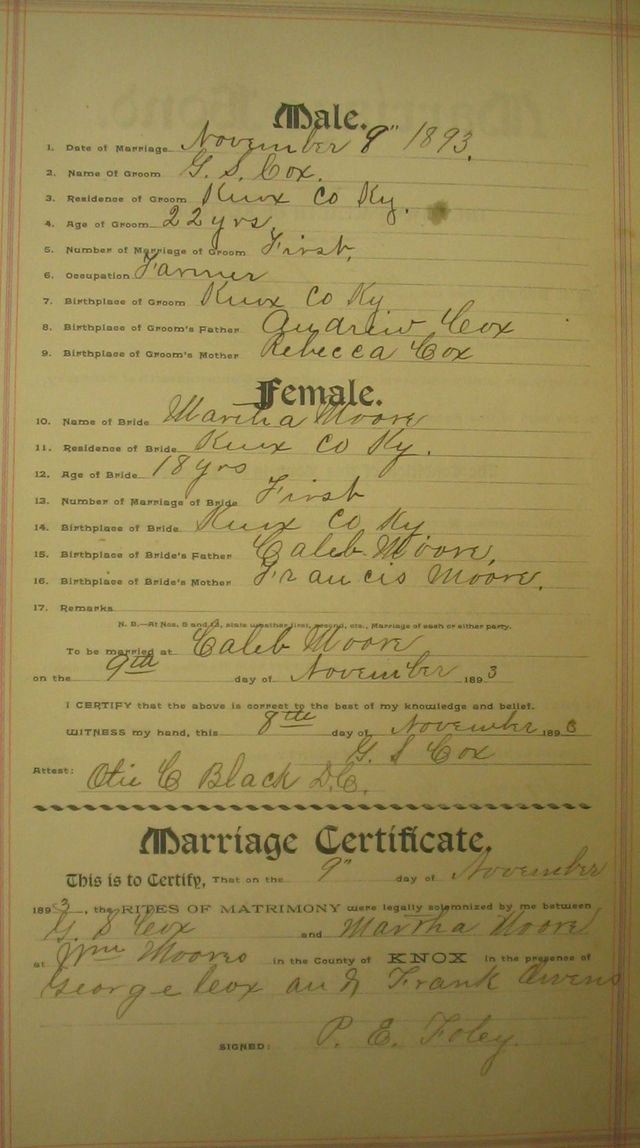 Male.
1. Date of Marriage November 9" 1893.
2. Name Of Groom G. S. Cox.
3. Residence of Groom Knox Co Ky.
4. Age of Groom 22 yrs.
5. Number of Marriage of Groom First.
6. Occupation Farmer
7. Birthplace of Groom Knox Co Ky
8. Birthplace of Groom's Father Andrew Cox
9. Birthplace of Groom's Mother Rebecca Cox
Female.
10. Name of Bride Martha Moore
11. Residence of Bride Knox Co Ky.
12. Age of Bride 18 yrs
13. Number of Marriage of Bride First
14. Birthplace of Bride Knox Co Ky
15. Birthplace of Bride's Father Caleb Moore,
16. Birthplace of Bride's Mother Francis Moore.
17. Remarks
N. B.—At Nos. 5 and 13, state whether first, second, etc., Marriage of each or either party.
To be married at Caleb Moore
on the 9th day of November 1893
I CERTIFY that the above is correct to the best of my knowledge and belief.
WITNESS my hand, this 8th day of November 1893
G. S Cox
Attest: Otie C Black D.C.
Marriage Certificate.
This is to Certify, That on the 9" day of November
1893, the RITES OF MATRIMONY were legally solemnized by me between
G. S Cox and Martha Moore
at Wm Moores in the County of KNOX in the presence of
George Cox and Frank Owens
SIGNED: P. E. Foley.